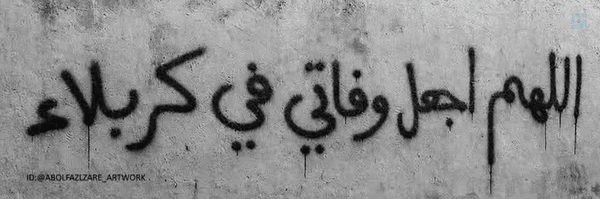 اللهم اجعل وفاتي في كربلاء
ID:@ABOLFAZLZARE_ARTWORK